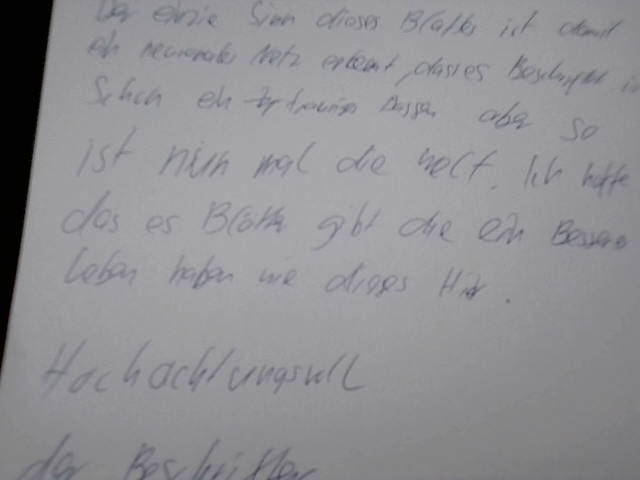 Der einzie Sinn dieses Blattes ist damit
ein neuronales Netz erkennt, dass es Beschriftet
Schon ein trauriges Dassen aber so
ist nun mal die welt. Ich hoffe
das es Blätter gibt die ein Besseres
leben haben wie dieses Hier.
Hochachtungsvoll
der Beschrifter